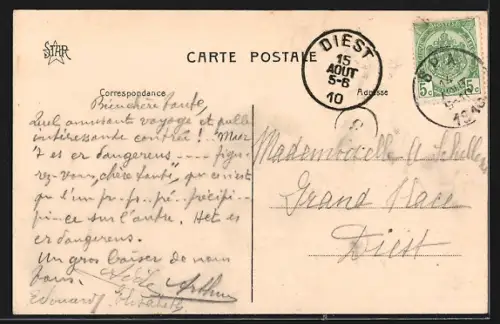 STAR
CARTE POSTALE
DIEST
15
AOUT
5-6
10
SPA
1910
5c 5c
Correspondance
Adresse
Bien chère tante,
Quel amusant voyage et quelle
intéressante contrée ! .. Mais
7 es er dangereus ---- figu-
rez-vous, chère tante, que c'n'est
qu'l'un pr- pr.. pré.. précipi..
pi-ce sur l'autre. Het es
er dangereus.
Un gros baiser de nous
tous.
Arthur
Edouard Elisabeth
Mademoiselle A Schellens
Grand Place
Diest